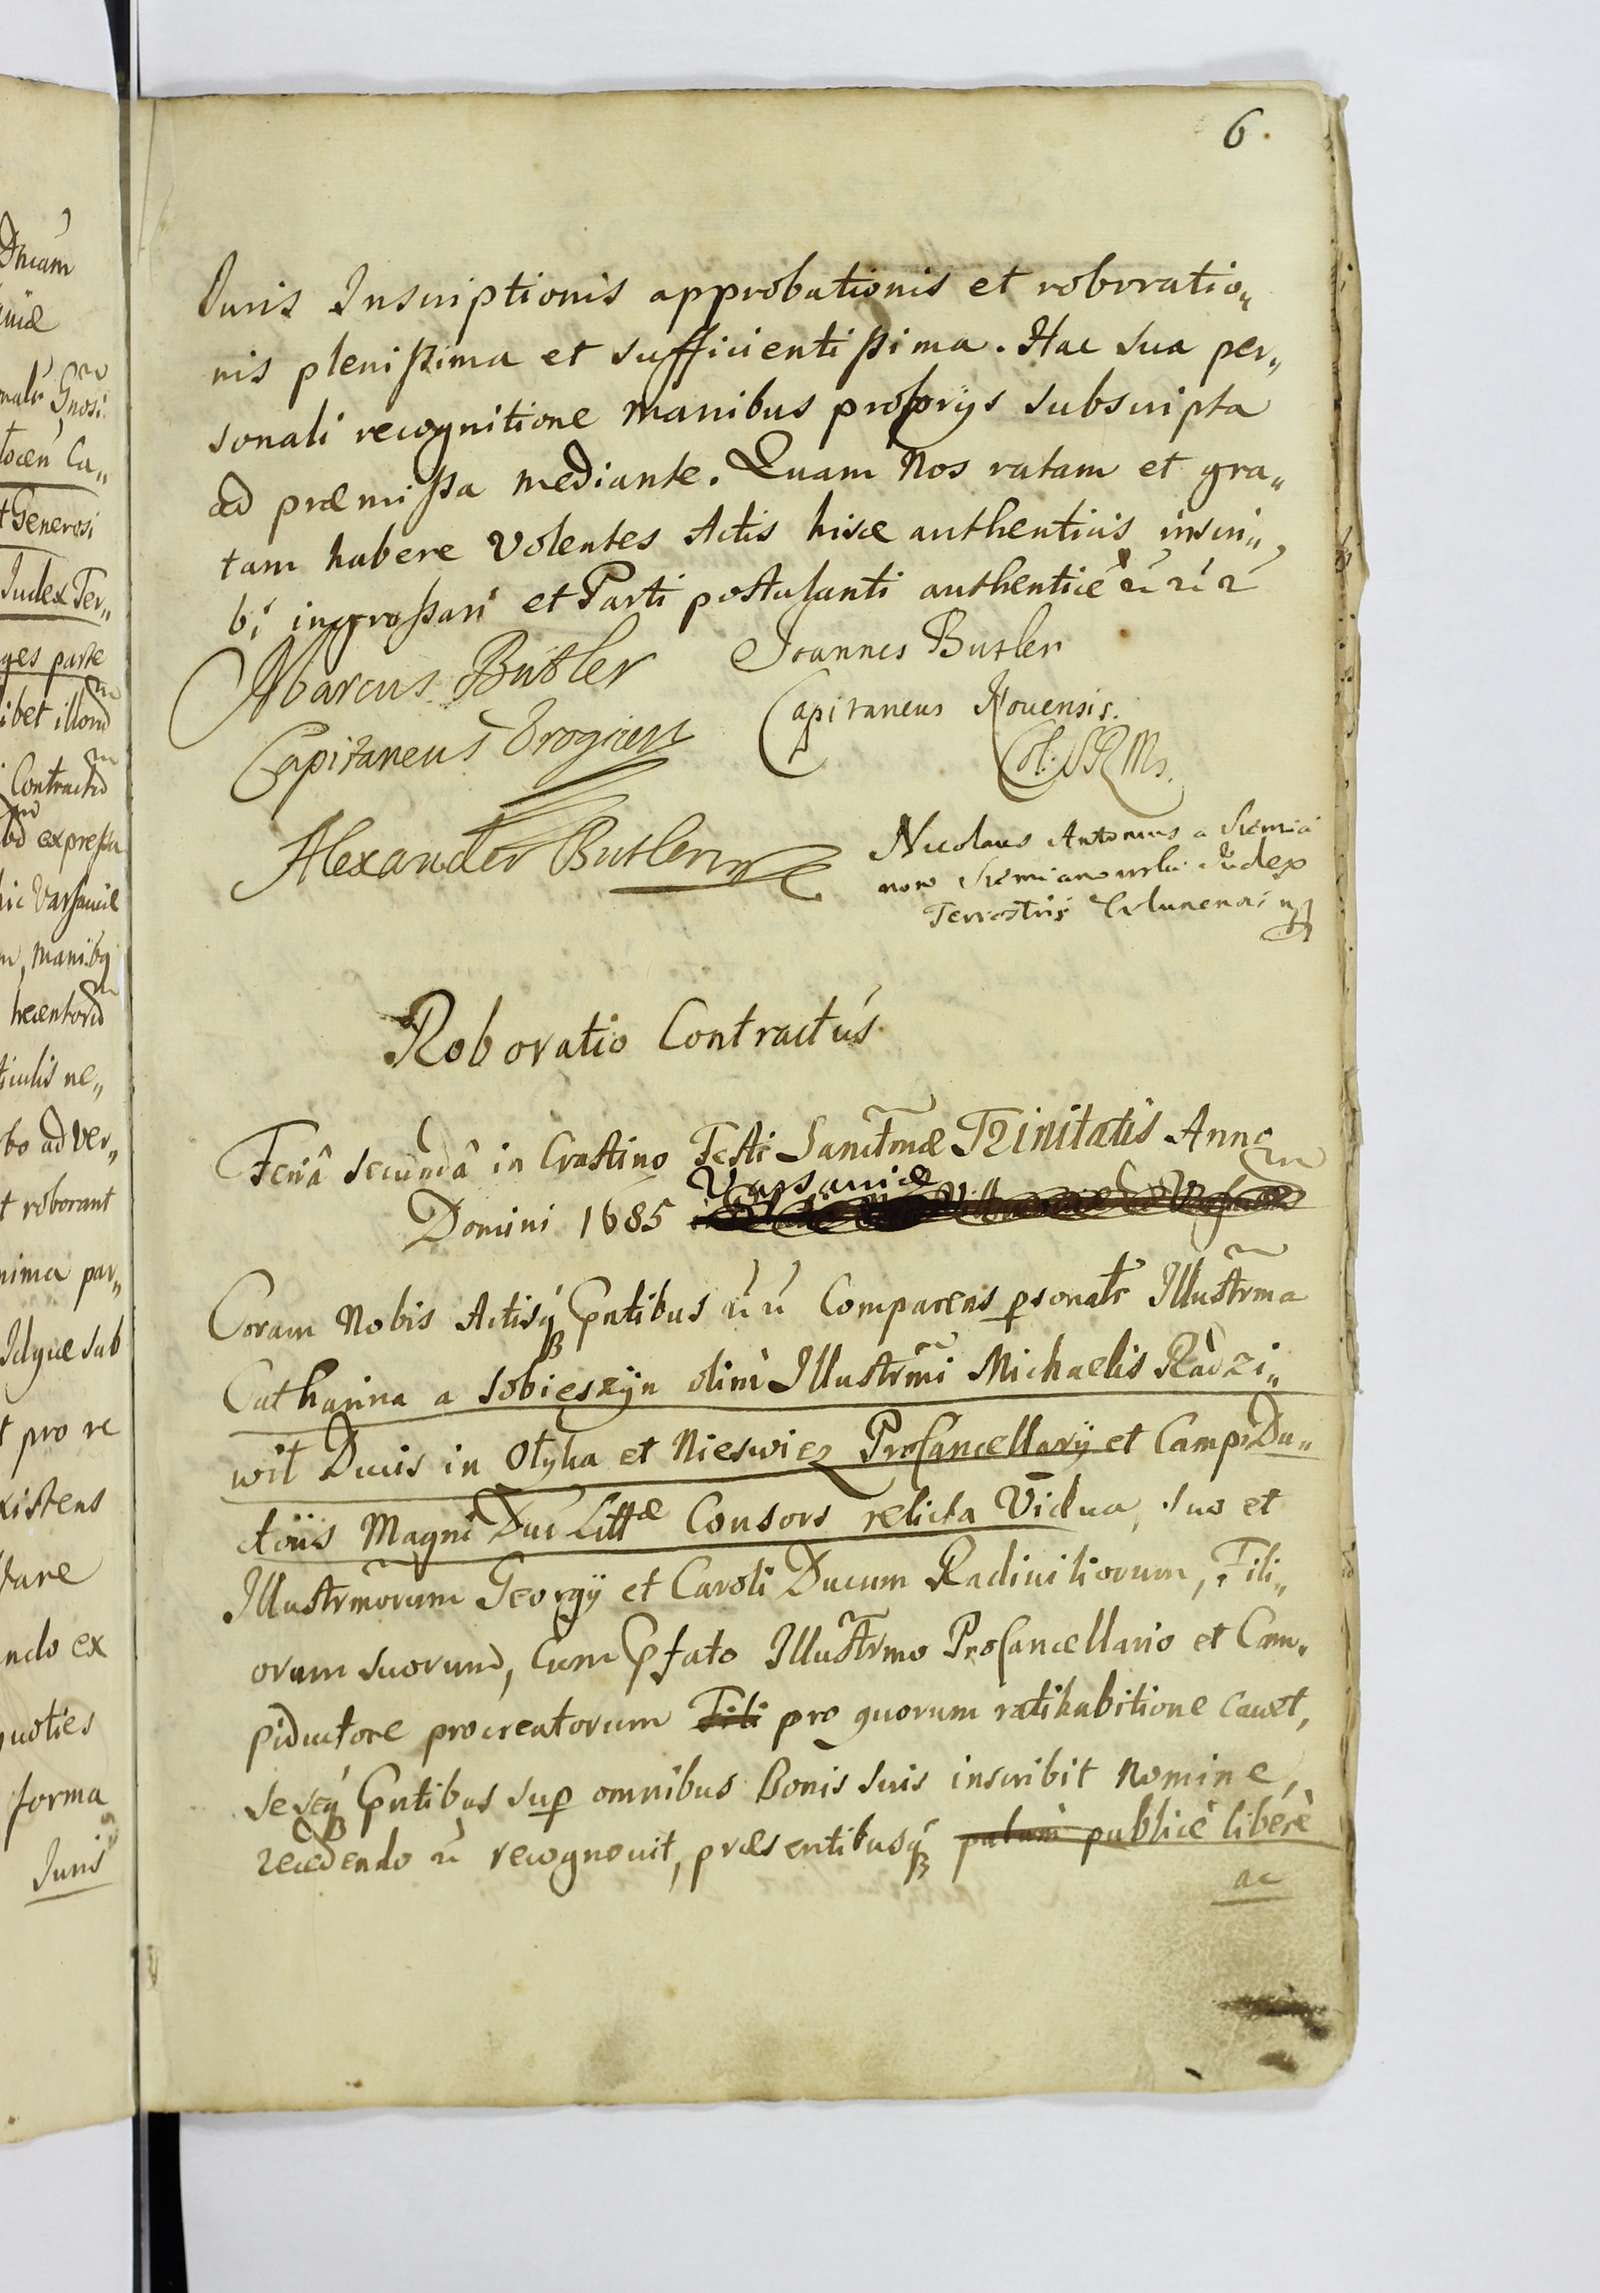 6.
Juris Inscriptionis approbationis et roboratio„
nis plenißima et sufficientißima. Hac sua per„
sonali recognitione manibus proprÿs subscripta
ad præmißa mediante. Quam Nos ratam et gra„
tam habere volentes Actis hisce authenticis inscri„
bi ingroßari et Parti postulanti authenticè
Marcus Butler
Capitaneus Drogicen
Joannes Butler
Capitaneus Novensis.
Col: S R Ms.
Alexander Butler
Nicolaus Antonius a Siemia
now Siemianowski Judex
Terrestris Wlunensis
Roboratio Contractûs
Feriâ secundâ in Crastino Festi Sanctmæ Trinitatis Anno
Varsaviæ
Domini 1685
Coram Nobis Actisq Pntibus Comparens psonalr Illustrma
Catharina a Sobieszÿn olim Illustrmi Michaelis Radzi„
wil Ducis in Olyka et Nieswiez ProCancellarÿ et Campi Du„
ctoris Magni Duc Littæ Consors relicta Vidua, suo et
Illustrmorum Georgÿ et Caroli Ducum Radiviliorum, Fili„
orum suorum, cum Pfato Illustrmo ProCancellario et Cam„
piductore procreatorum Fili pro quorum ratihabitione cavet,
seseq Pntibus sup omnibus Bonis suis inscribit Nomine,
recedendo recognovit, præsentibusq palam publicè liberè
ac
Dncam
nalr Gnosi
Ca„
t Generosi
Judex Ter„
ges parte
ibet illorum
Contractum
expreßa
hic Varsaviæ
m, manibq
ticulis ne„
bo ad ver„
t roborant
nima par„
Idque sub
t pro re
xistens
ndo ex
quoties
forma
Juris